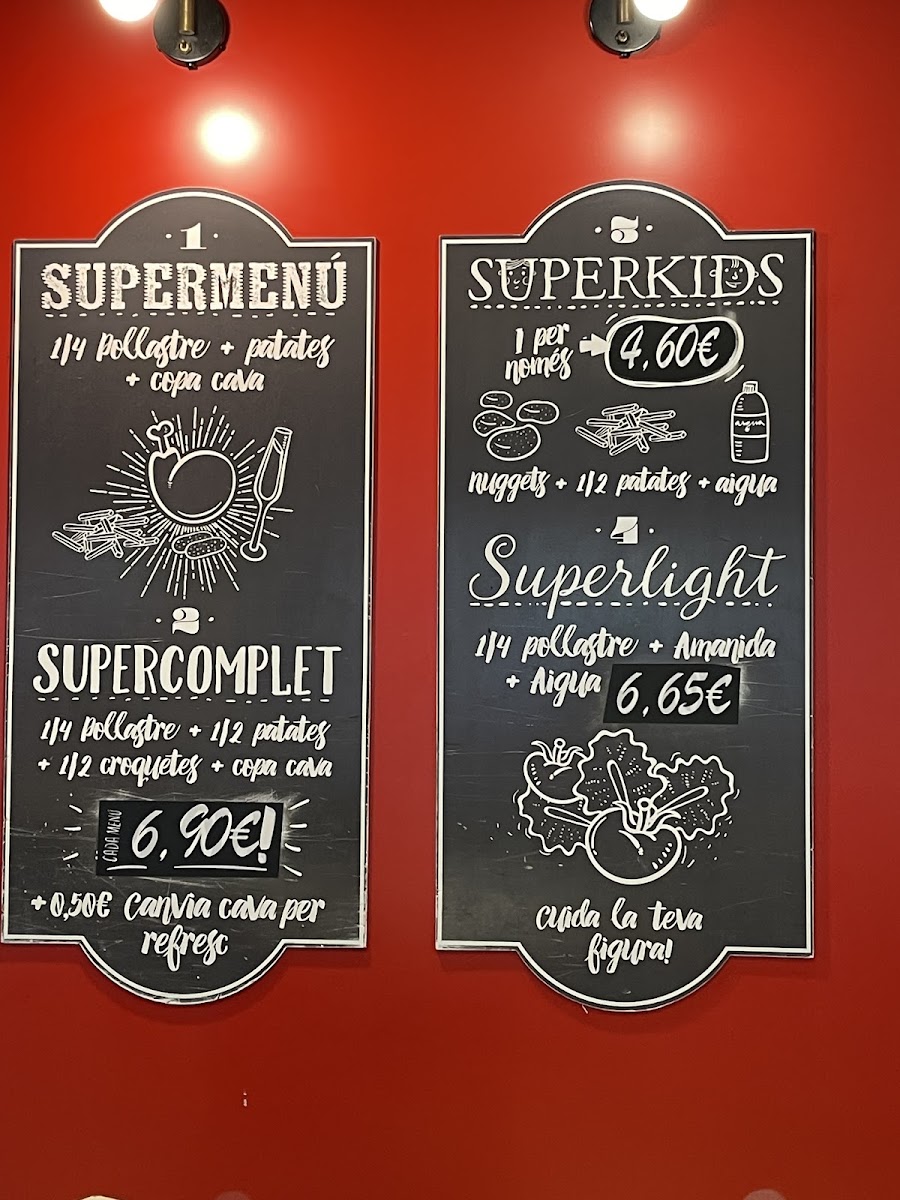 ·1·
SUPERMENÚ
1/4 pollastre + patates
+ copa cava
·2·
SUPERCOMPLET
1/4 pollastre + 1/2 patates
+ 1/2 croquetes + copa cava
CADA MENÚ 6,90€!
+0,50€ Canvia cava per
refresc
·3·
SUPERKIDS
1 per
només
4,60€
aigua
nuggets + 1/2 patates + aigua
·4·
Superlight
1/4 pollastre + Amanida
+ Aigua 6,65€
cuida la teva
figura!